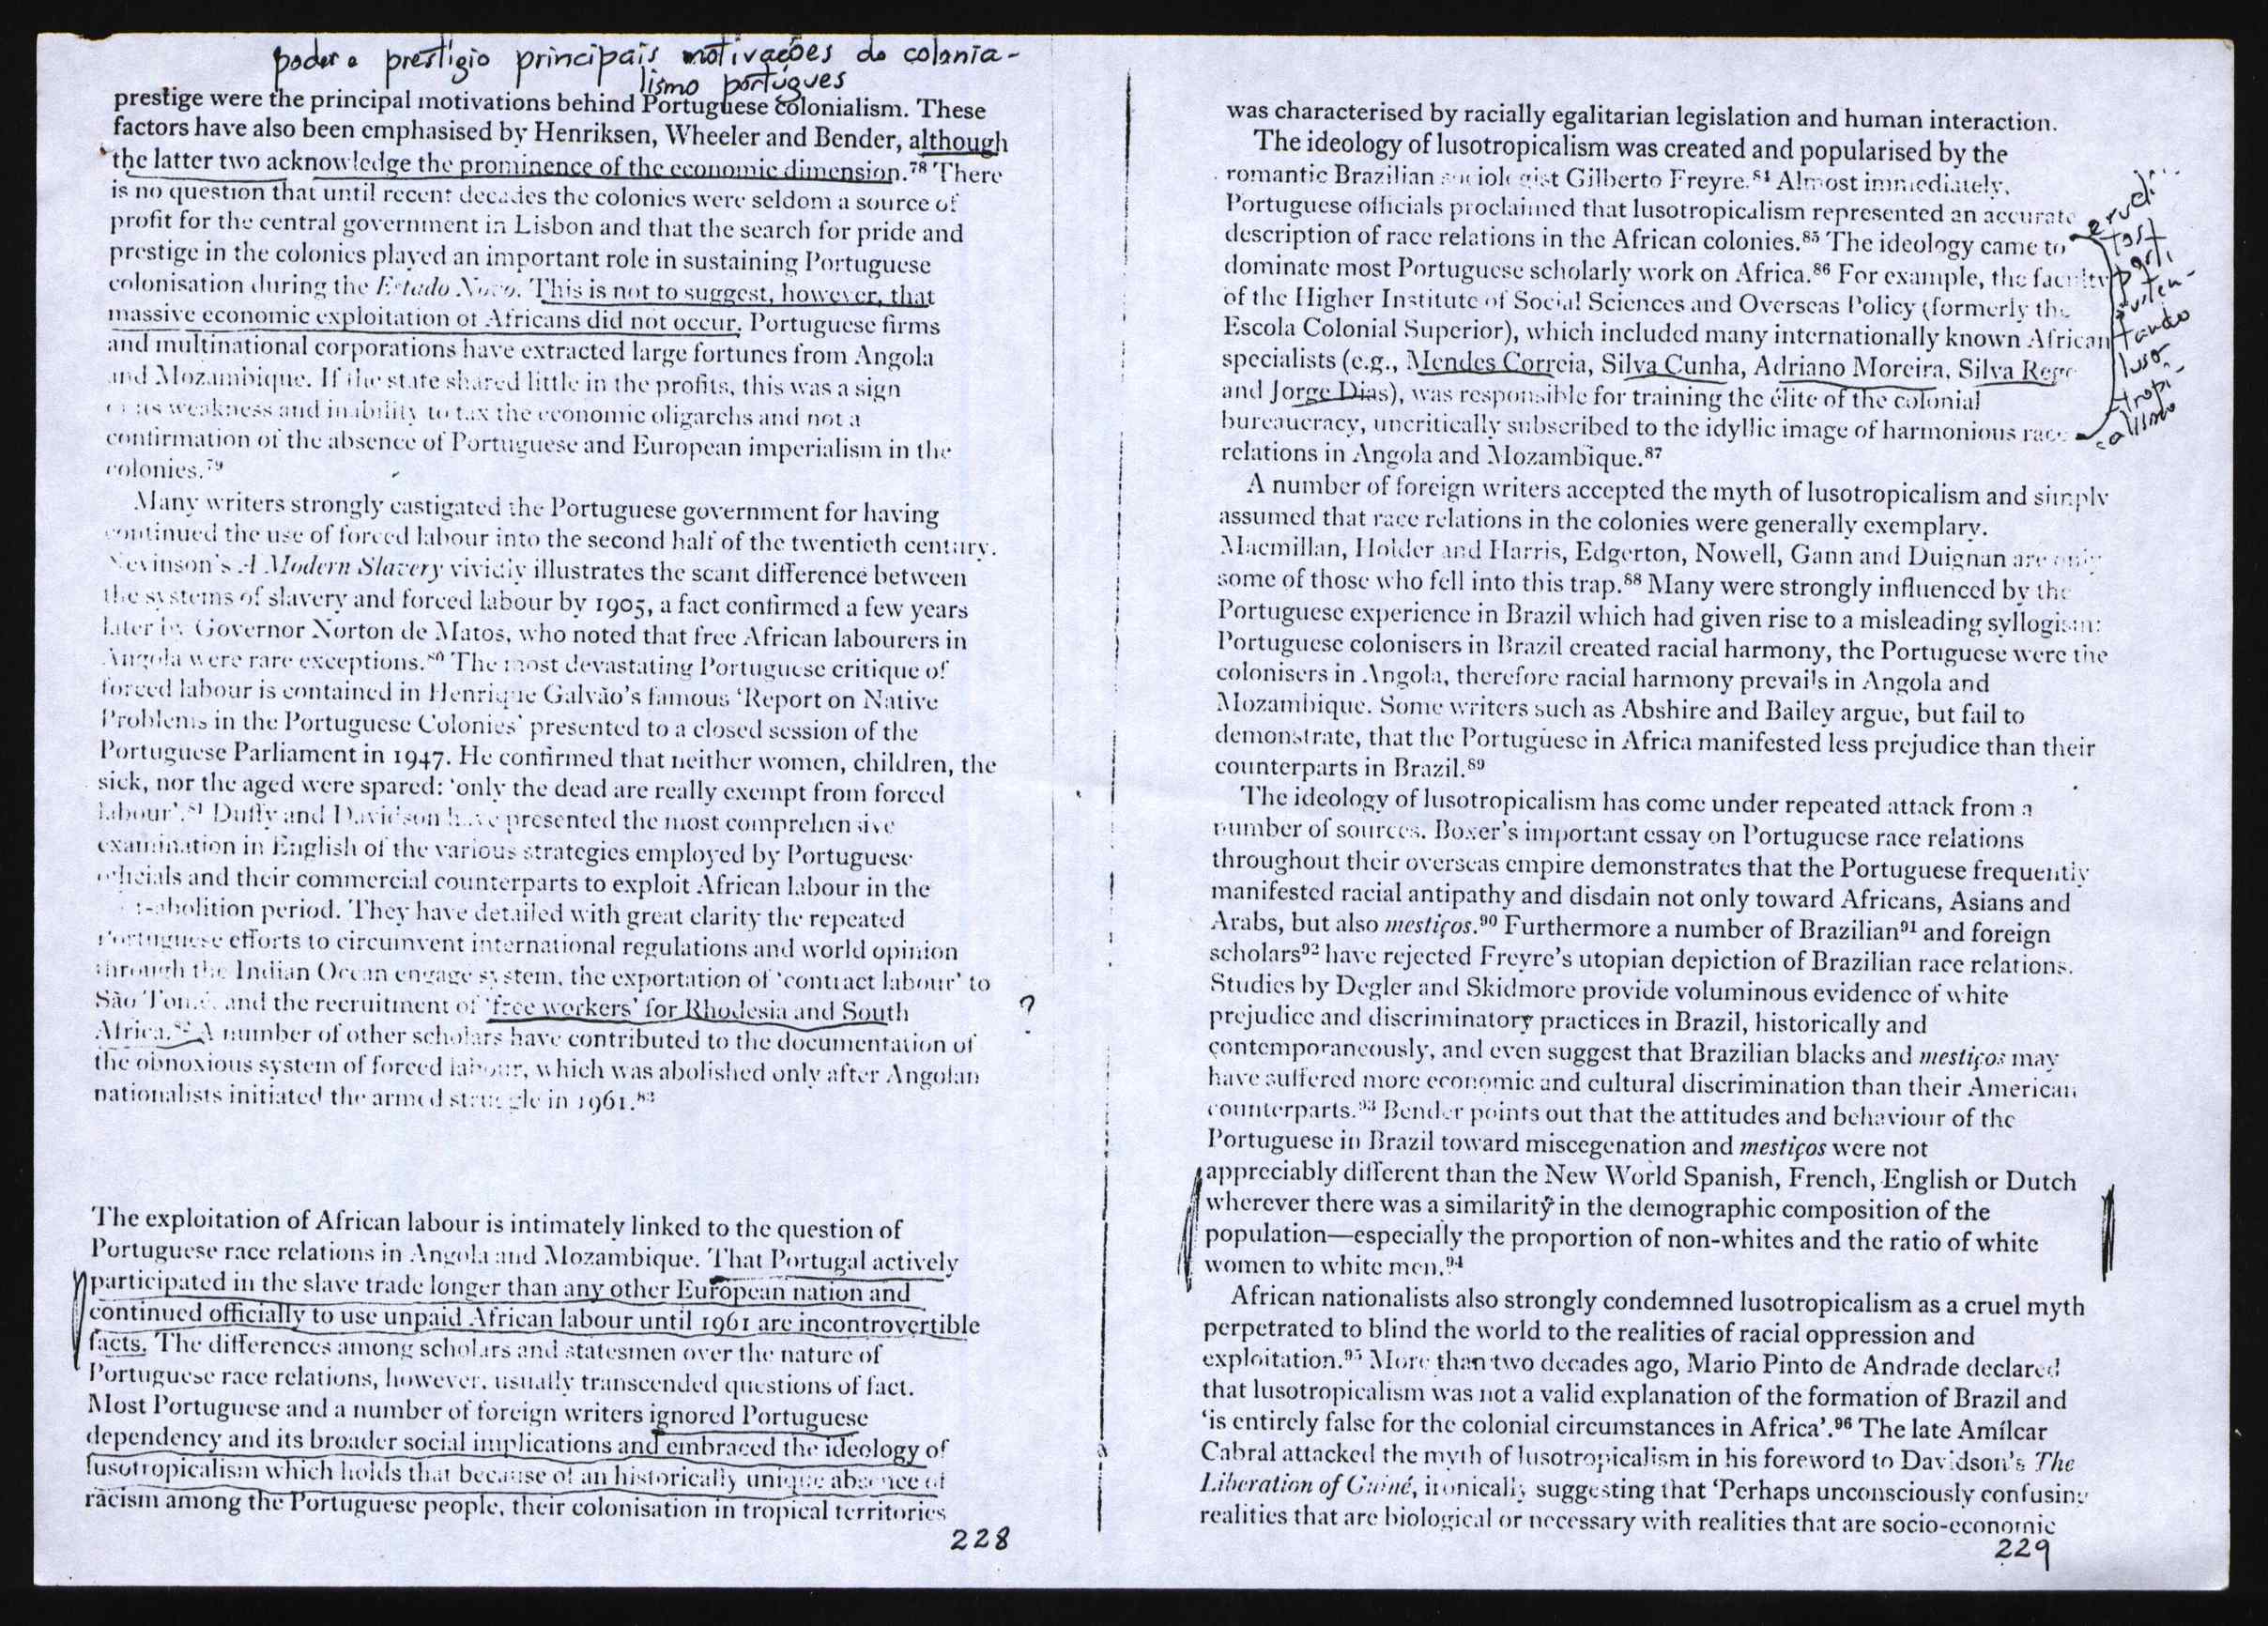 poder e prestígio principais motivações do colonia-
lismo português
prestige were the principal motivations behind Portuguese colonialism. These
factors have also been emphasised by Henriksen, Wheeler and Bender, although
the latter two acknowledge the prominence of the economic dimension.⁷⁸ There
is no question that until recent decades the colonies were seldom a source of
profit for the central government in Lisbon and that the search for pride and
prestige in the colonies played an important role in sustaining Portuguese
colonisation during the Estado Novo. This is not to suggest, however, that
massive economic exploitation of Africans did not occur. Portuguese firms
and multinational corporations have extracted large fortunes from Angola
and Mozambique. If the state shared little in the profits, this was a sign
of its weakness and inability to tax the economic oligarchs and not a
confirmation of the absence of Portuguese and European imperialism in the
colonies.⁷⁹
Many writers strongly castigated the Portuguese government for having
continued the use of forced labour into the second half of the twentieth century.
Nevinson's A Modern Slavery vividly illustrates the scant difference between
the systems of slavery and forced labour by 1905, a fact confirmed a few years
later by Governor Norton de Matos, who noted that free African labourers in
Angola were rare exceptions.⁸⁰ The most devastating Portuguese critique of
forced labour is contained in Henrique Galvão's famous 'Report on Native
Problems in the Portuguese Colonies' presented to a closed session of the
Portuguese Parliament in 1947. He confirmed that neither women, children, the
sick, nor the aged were spared: 'only the dead are really exempt from forced
labour'.⁸¹ Duffy and Davidson have presented the most comprehensive
examination in English of the various strategies employed by Portuguese
officials and their commercial counterparts to exploit African labour in the
-abolition period. They have detailed with great clarity the repeated
Portuguese efforts to circumvent international regulations and world opinion
through the Indian Ocean engage system, the exportation of 'contract labour' to
São Tomé, and the recruitment of 'free workers' for Rhodesia and South ?
Africa.⁸² A number of other scholars have contributed to the documentation of
the obnoxious system of forced labour, which was abolished only after Angolan
nationalists initiated the armed struggle in 1961.⁸³
The exploitation of African labour is intimately linked to the question of
Portuguese race relations in Angola and Mozambique. That Portugal actively
participated in the slave trade longer than any other European nation and
continued officially to use unpaid African labour until 1961 are incontrovertible
facts. The differences among scholars and statesmen over the nature of
Portuguese race relations, however, usually transcended questions of fact.
Most Portuguese and a number of foreign writers ignored Portuguese
dependency and its broader social implications and embraced the ideology of
lusotropicalism which holds that because of an historically unique absence of
racism among the Portuguese people, their colonisation in tropical territories
228
was characterised by racially egalitarian legislation and human interaction.
The ideology of lusotropicalism was created and popularised by the
romantic Brazilian sociologist Gilberto Freyre.⁸⁴ Almost immediately,
Portuguese officials proclaimed that lusotropicalism represented an accurate
description of race relations in the African colonies.⁸⁵ The ideology came to
dominate most Portuguese scholarly work on Africa.⁸⁶ For example, the faculty
of the Higher Institute of Social Sciences and Overseas Policy (formerly the
Escola Colonial Superior), which included many internationally known African
specialists (e.g., Mendes Correia, Silva Cunha, Adriano Moreira, Silva Rego
and Jorge Dias), was responsible for training the élite of the colonial
bureaucracy, uncritically subscribed to the idyllic image of harmonious race
relations in Angola and Mozambique.⁸⁷
tando
luso-
tropi-
calismo
A number of foreign writers accepted the myth of lusotropicalism and simply
assumed that race relations in the colonies were generally exemplary.
Macmillan, Holder and Harris, Edgerton, Nowell, Gann and Duignan are only
some of those who fell into this trap.⁸⁸ Many were strongly influenced by the
Portuguese experience in Brazil which had given rise to a misleading syllogism:
Portuguese colonisers in Brazil created racial harmony, the Portuguese were the
colonisers in Angola, therefore racial harmony prevails in Angola and
Mozambique. Some writers such as Abshire and Bailey argue, but fail to
demonstrate, that the Portuguese in Africa manifested less prejudice than their
counterparts in Brazil.⁸⁹
The ideology of lusotropicalism has come under repeated attack from a
number of sources. Boxer's important essay on Portuguese race relations
throughout their overseas empire demonstrates that the Portuguese frequently
manifested racial antipathy and disdain not only toward Africans, Asians and
Arabs, but also mestiços.⁹⁰ Furthermore a number of Brazilian⁹¹ and foreign
scholars⁹² have rejected Freyre's utopian depiction of Brazilian race relations.
Studies by Degler and Skidmore provide voluminous evidence of white
prejudice and discriminatory practices in Brazil, historically and
contemporaneously, and even suggest that Brazilian blacks and mestiços may
have suffered more economic and cultural discrimination than their American
counterparts.⁹³ Bender points out that the attitudes and behaviour of the
Portuguese in Brazil toward miscegenation and mestiços were not
appreciably different than the New World Spanish, French, English or Dutch
wherever there was a similarity in the demographic composition of the
population—especially the proportion of non-whites and the ratio of white
women to white men.⁹⁴
African nationalists also strongly condemned lusotropicalism as a cruel myth
perpetrated to blind the world to the realities of racial oppression and
exploitation.⁹⁵ More than two decades ago, Mario Pinto de Andrade declared
that lusotropicalism was not a valid explanation of the formation of Brazil and
'is entirely false for the colonial circumstances in Africa'.⁹⁶ The late Amílcar
Cabral attacked the myth of lusotropicalism in his foreword to Davidson's The
Liberation of Guiné, ironically suggesting that 'Perhaps unconsciously confusing
realities that are biological or necessary with realities that are socio-economic
229